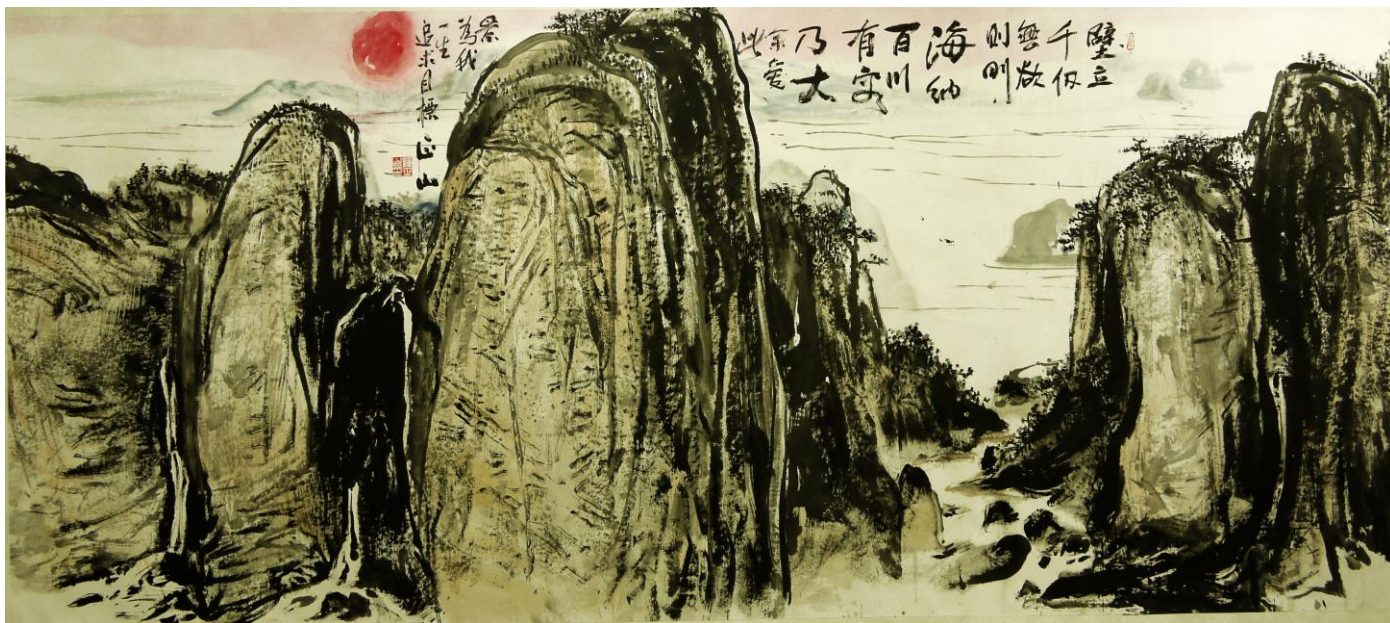 壁立
千仞
無欲
則剛
海納
百川
有容
乃大
余愛
此
為我
一生
追求目標 正山